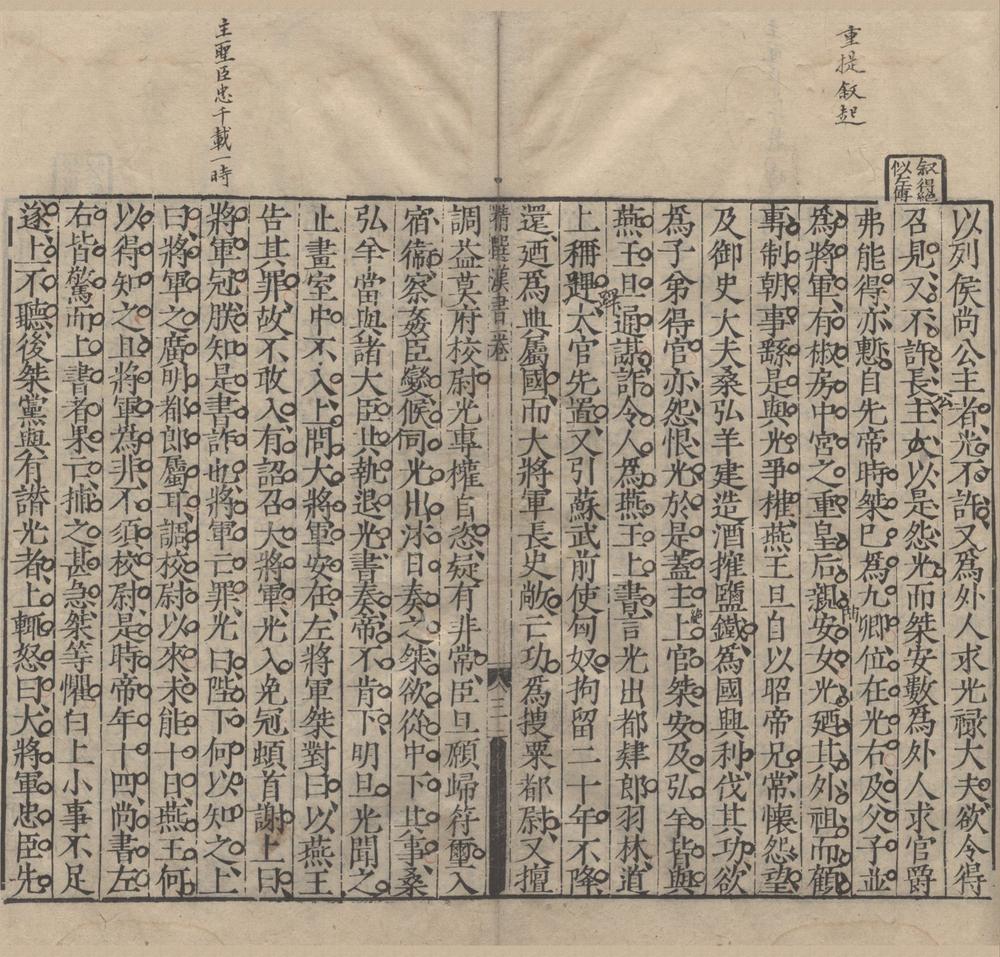 重提叙起
叙得絕
似左傳
以列侯尚公主者光不許又爲外人求光祿大夫欲令得
召見又不許長公主大以是怨光而桀安數爲外人求官爵
弗能得亦慙自先帝時桀已爲九卿位在光右及父子並
爲將軍有椒房中宮之重皇后親安女光廼其外祖而顧
專制朝事繇是與光爭權燕王旦自以昭帝兄常懷怨望
及御史大夫桑弘羊建造酒搉鹽鐵爲國興利伐其功欲
爲子弟得官亦怨恨光於是蓋主上官桀安及弘羊皆與
燕王旦通謀詐令人爲燕王上書言光出都肄郎羽林道
上稱䟆太官先置又引蘇武前使匈奴拘留二十年不降
還廼爲典屬國而大將軍長史敞亡功爲搜粟都尉又擅
精選漢書 卷
三
調益莫府校尉光專權自恣疑有非常臣旦願歸符璽入
宿衞察姦臣變候伺光出沐日奏之桀欲從中下其事桑
弘羊當與諸大臣共執退光書奏帝不肯下明旦光聞之
止畫室中不入上問大將軍安在左將軍桀對曰以燕王
告其罪故不敢入有詔召大將軍光入免冠頓首謝上曰
將軍冠朕知是書詐也將軍亡罪光曰陛下何以知之上
曰將軍之廣明都郎屬耳調校尉以來未能十日燕王何
以得知之且將軍爲非不須校尉是時帝年十四尚書左
右皆驚而上書者果亡捕之甚急桀等懼白上小事不足
遂上不聽後桀黨與有譖光者上輒怒曰大將軍忠臣先
主聖臣忠千載一時